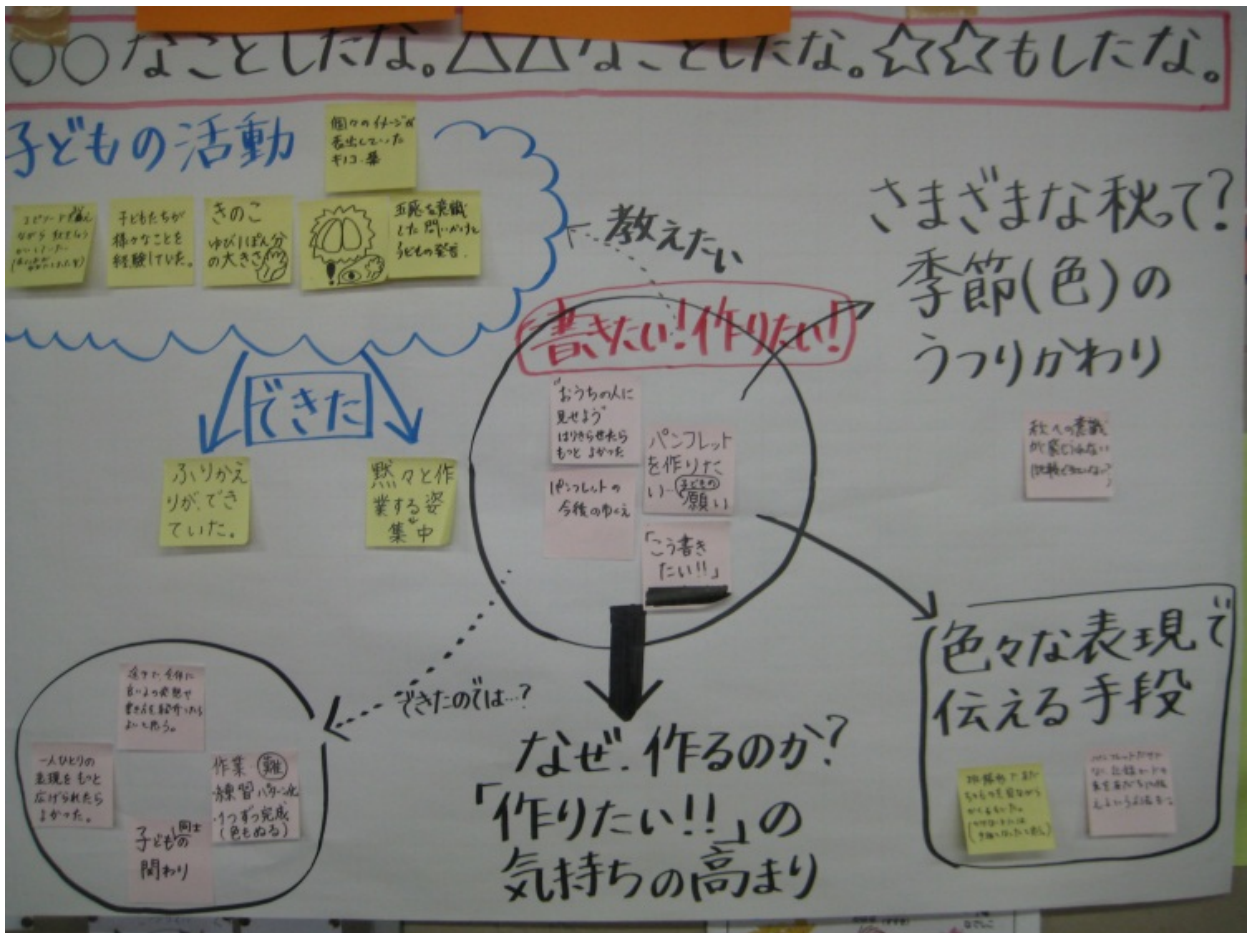 ○○なことしたな。△△なことしたな。☆☆もしたな。
子どもの活動
個々のイメージが
表出していった
キノコ、栗
子どもたちが
様々なことを
経験していた。
きのこ
ゆび1ぽん分
の大きさ
五感を意識
した問いかけと
子どもの発言.
できた
ふりかえ
りが、でき
ていた。
黙々と作
業する姿
集中
教えたい
書きたい!作りたい!
"おうちの人に
見せよう"
はりきらせたら
もっとよかった
パンフレットの
今後のゆくえ
パンフレット
を作りた
い…子どもの
願い
「こう書き
たい!!」
さまざまな秋って?
季節(色)の
うつりかわり
秋への意識
色々な表現で
伝える手段
できたのでは…?
一人ひとりの
表現をもっと
広げられたら
よかった。
作業 難
・練習 パターン化
・1つずつ完成
(色もぬる)
子ども同士の
関わり
なぜ、作るのか?
「作りたい!!」の
気持ちの高まり